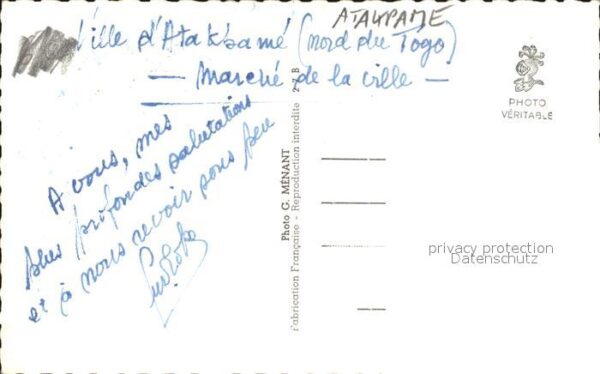 ATAKPAME
Ville d'Atakbamé (nord du Togo)
— Marché de la ville —
A vous, mes
plus profondes salutations
et à nous revoir sous peu
Photo G. MÉNANT
Fabrication Française - Reproduction interdite
PHOTO
VÉRITABLE
privacy protection
Datenschutz